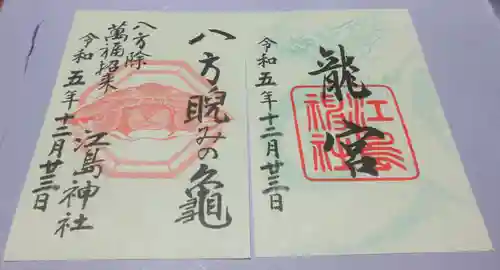 八方睨みの亀
八方除
萬福招来
令和五年十二月廿三日
江島神社
龍宮
江島神社
令和五年十二月廿三日